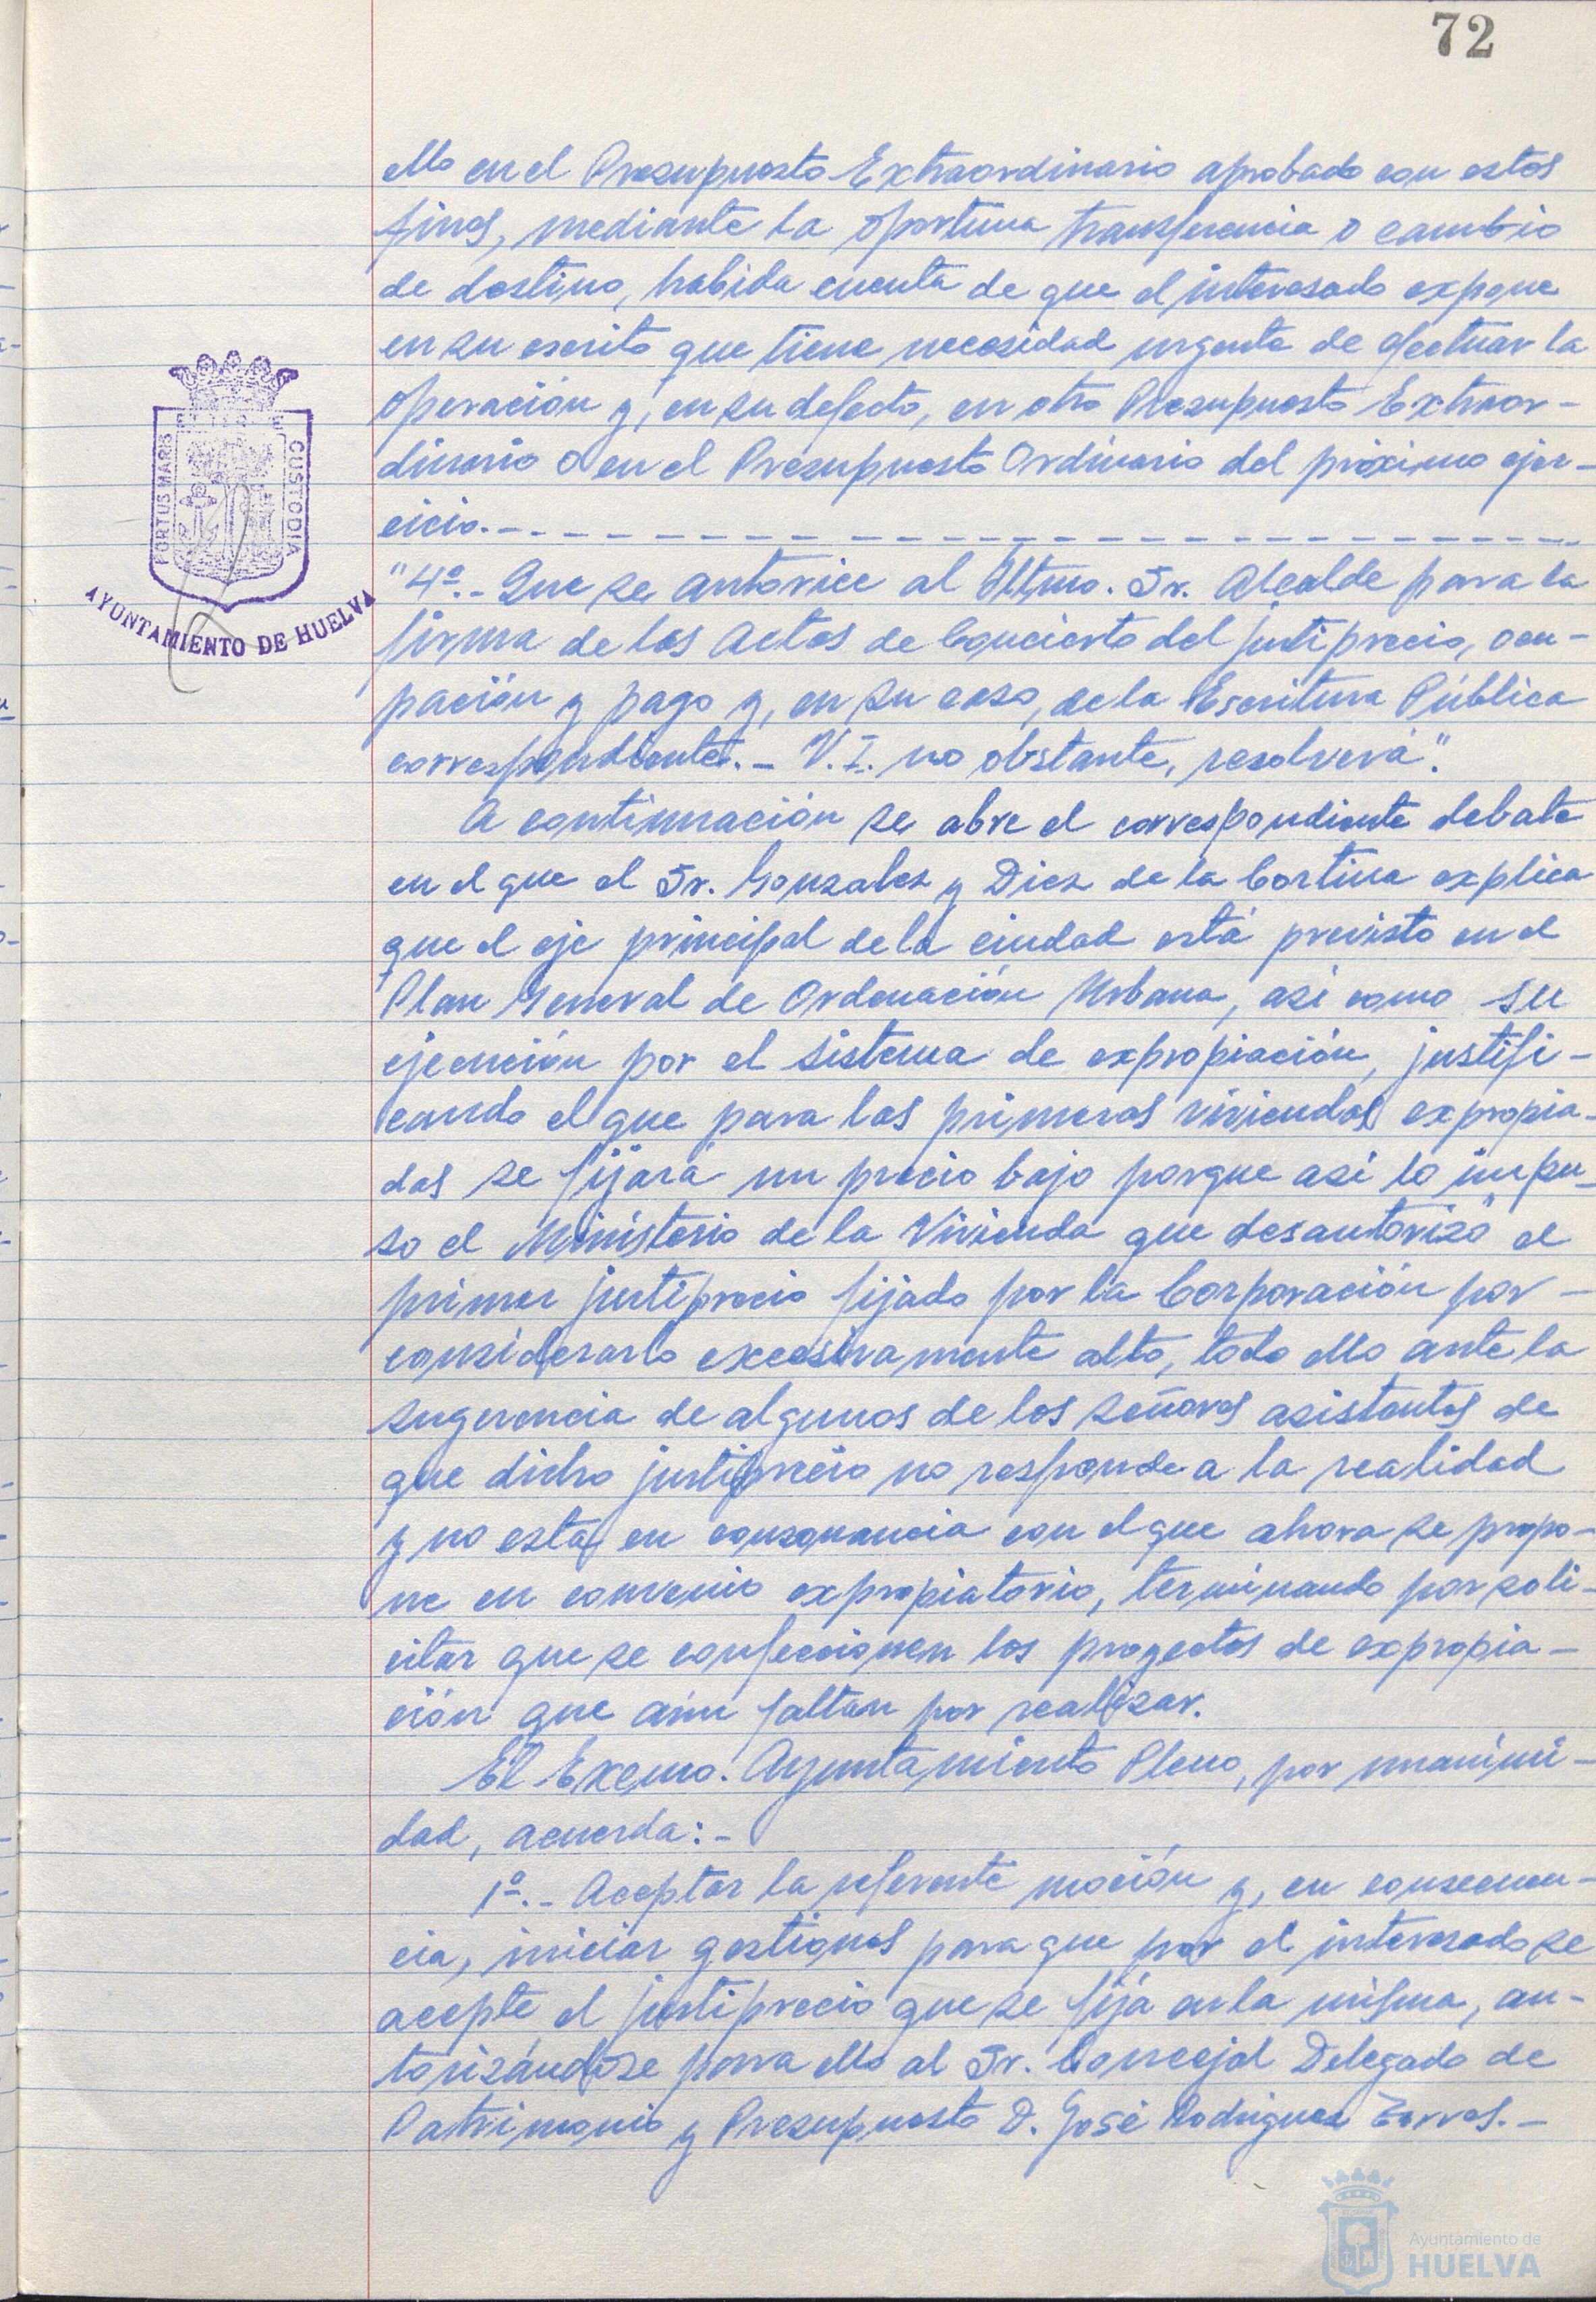 72
ello en el Presupuesto Extraordinario aprobado con estos
fines, mediante la oportuna transferencia o cambio
de destino, habida cuenta de que el interesado expone
en su escrito que tiene necesidad urgente de efectuar la
operación y, en su defecto, en otro Presupuesto Extraor-
dinario o en el Presupuesto Ordinario del próximo ejer-
cicio.-
"4º.- Que se autorice al Iltmo. Sr. Alcalde para la
firma de las Actas de Concierto del justiprecio, ocu-
pación y pago y, en su caso, de la Escritura Pública
correspondiente.- V.I. no obstante, resolverá".
A continuación se abre el correspondiente debate
en el que el Sr. Gonzalez y Diez de la Cortina explica
que el eje principal de la ciudad está previsto en el
Plan General de Ordenación Urbana, así como su
ejecución por el sistema de expropiación, justifi-
cando el que para las primeras viviendas expropia-
das se fijara un precio bajo porque así lo impu-
so el Ministerio de la Vivienda que desautorizó el
primer justiprecio fijado por la Corporación por-
considerarlo excesivamente alto, todo ello ante la
sugerencia de algunos de los señores asistentes de
que dicho justiprecio no responde a la realidad
y no está en consonancia con el que ahora se propo-
ne en convenio expropiatorio, terminando por soli-
citar que se confeccionen los proyectos de expropia-
ción que aún faltan por realizar.
El Excmo. Ayuntamiento Pleno, por unanimi-
dad, acuerda:-
1º.- Aceptar la referente moción y, en consecuen-
cia, iniciar gestiones para que por el interesado se
acepte el justiprecio que se fija en la misma, au-
torizándose para ello al Sr. Concejal Delegado de
Patrimonio y Presupuesto D. José Rodriguez Torres.-
PORTUS MARIS
CUSTODIA
AYUNTAMIENTO DE HUELVA
Ayuntamiento de
HUELVA